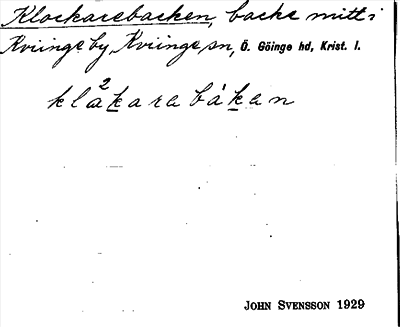 Klockarebacken, backe mitt i
Kviinge by, Kviinge sn, Ö. Göinge hd, Krist. l.
klåkarabákan
JOHN SVENSSON 1929